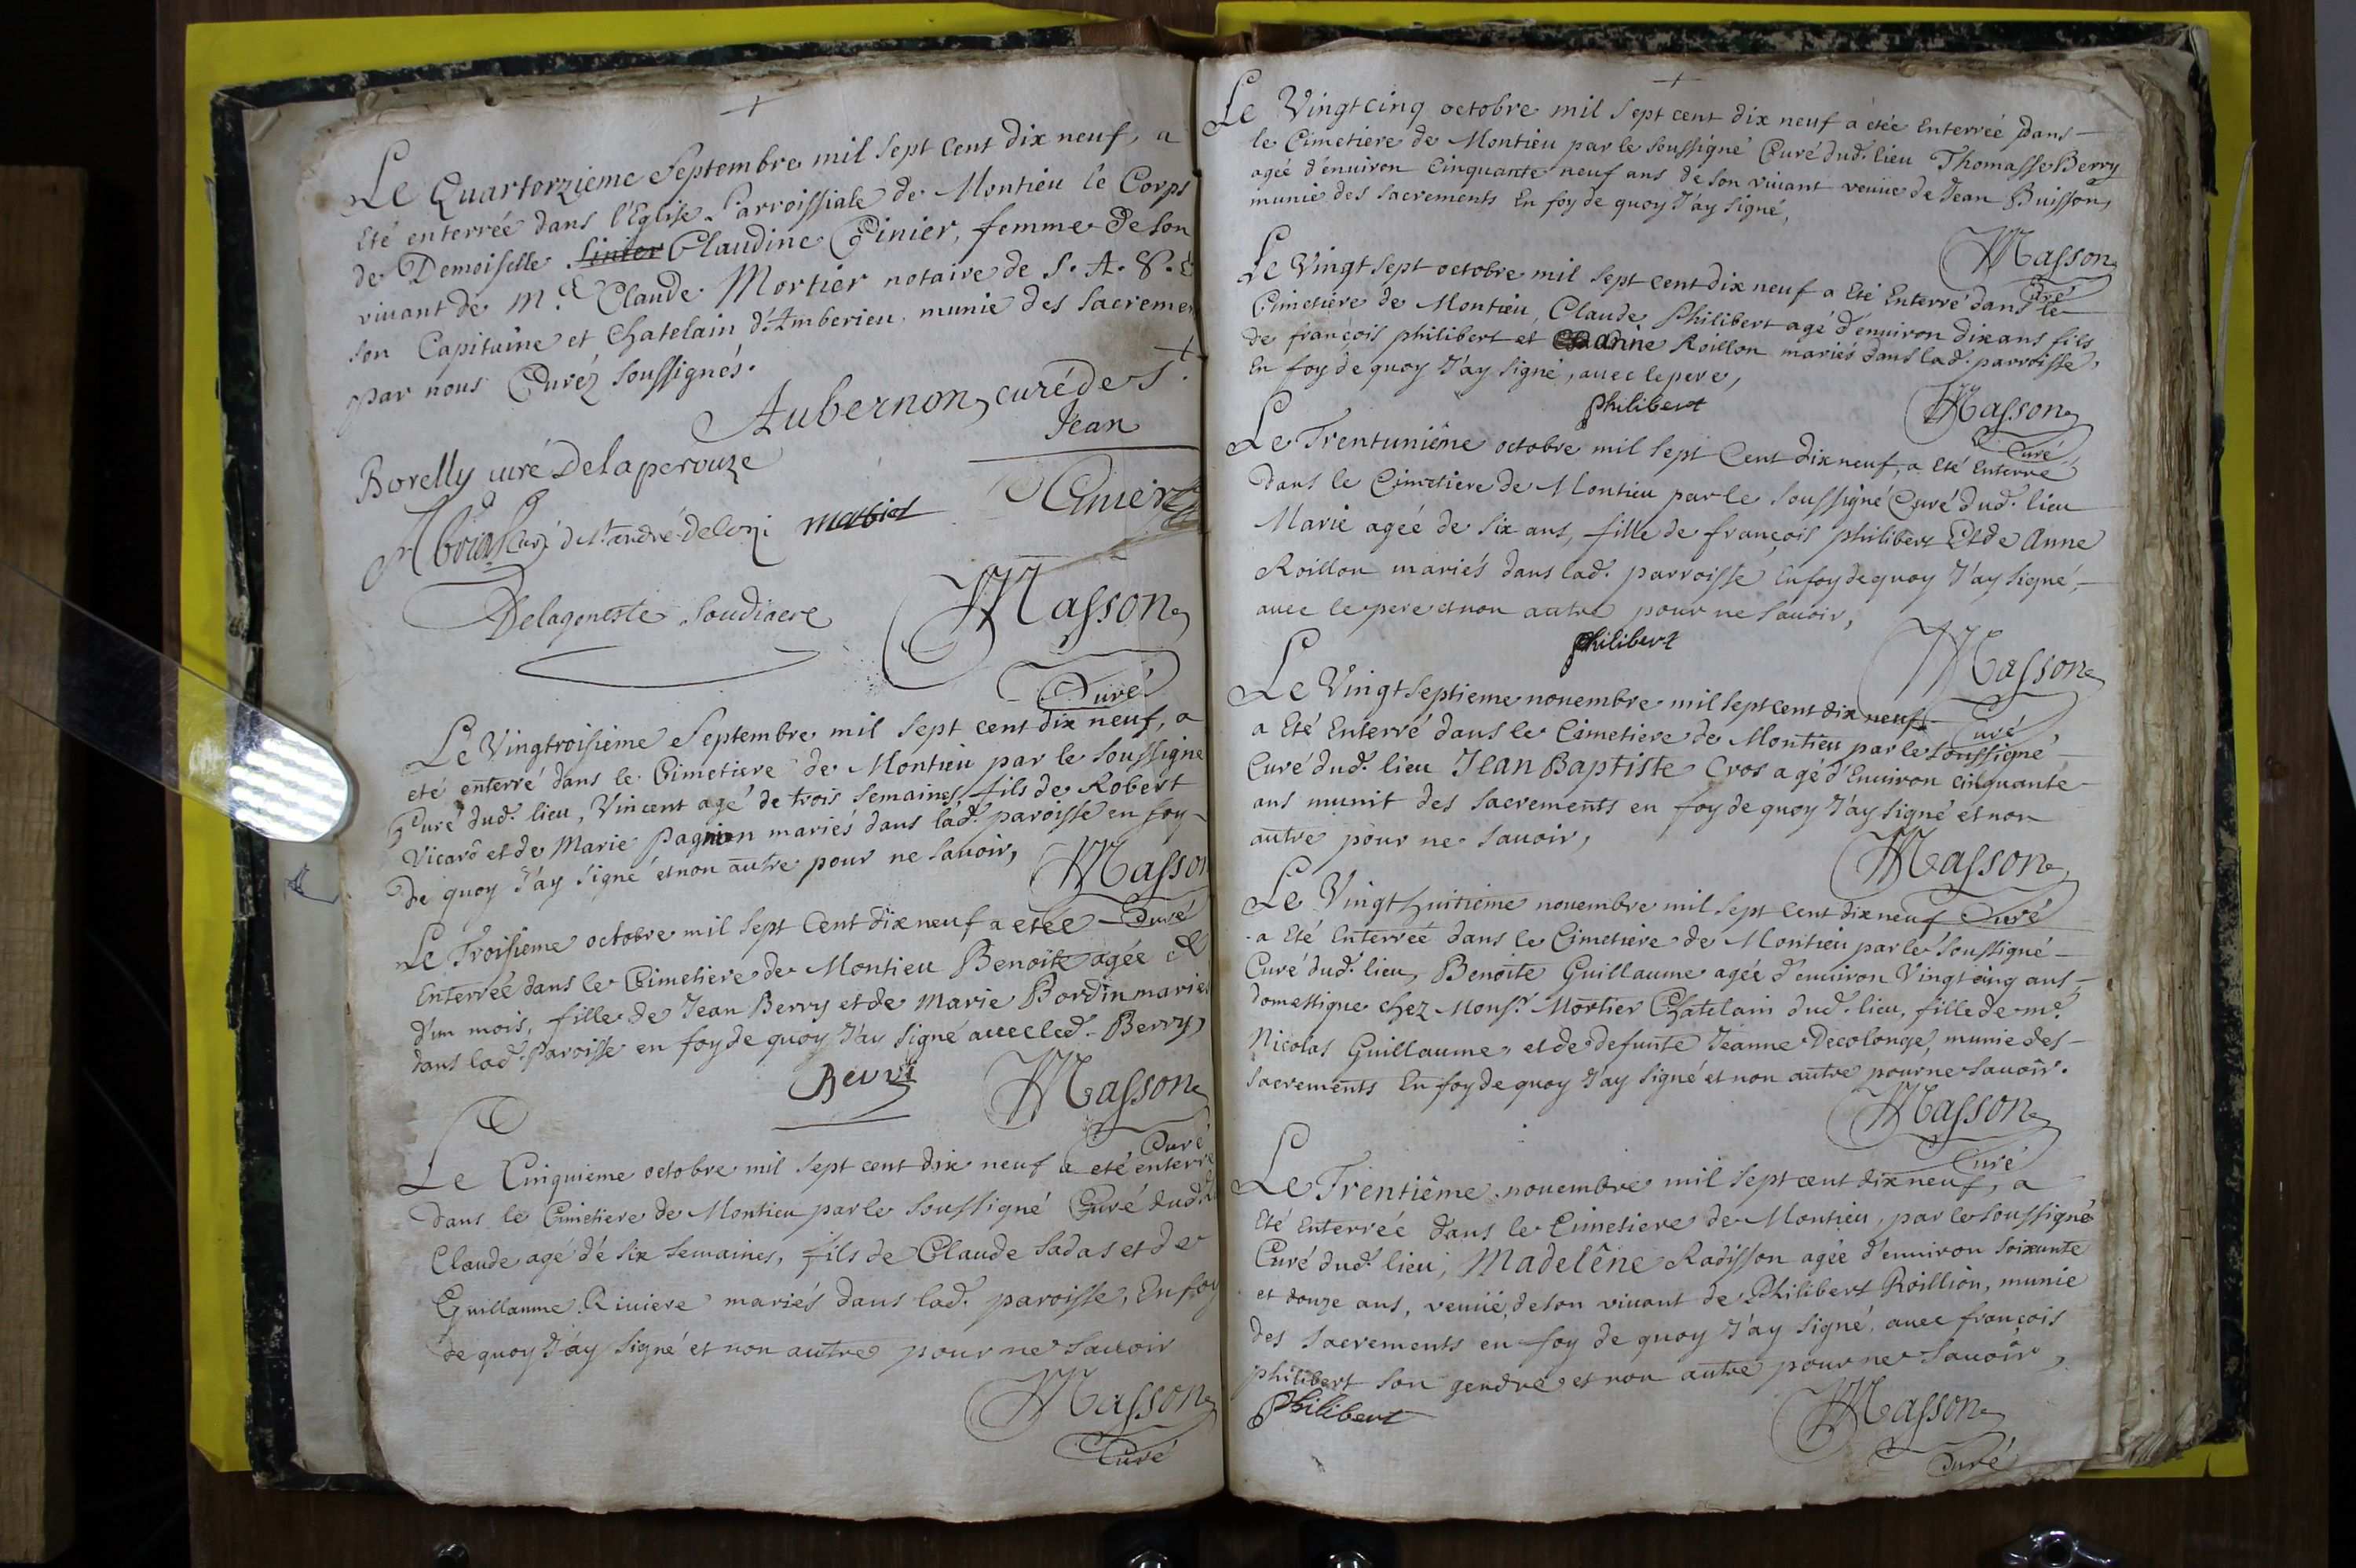 Le Quartorzieme Septembre mil sept cent dix neuf, a
Eté enterrée dans l'Eglise Parroissiale de Montieu le Corps
de Demoiselle Claudine Ginier, femme de son
vivant de M.e Claude Mortier notaire de S. A. S. &
son Capitaine et Chatelain d'Amberieu, munie des Sacremen
par nous Curéz soussignés.
Aubernon, curé de St.
Jean
Borelly curé Delaperouze
curé d St. andré
Ginier
Delageneste Soudiacre
Masson
Curé
Le Vingtroisieme Septembre mil sept cent dix neuf, a
eté enterré dans le Cimetiere de Montieu par le soussigné
Curé dud. lieu, Vincent agé de trois semaines, fils de Robert
Vicard et de Marie Pagnon mariés dans lad. paroisse en foy
de quoy J'ay signé et non autre pour ne savoir,
Masson
Curé
Le Troisieme octobre mil sept cent dix neuf a etée
Enterrée dans le Cimetiere de Montieu Benoite agée
d'un mois, fille de Jean Berry et de Marie Bordin marie
dans lad. Paroisse en foy de quoy J'ay signé avec led. Berry,
Berri
Masson
Curé
Le Cinquieme octobre mil sept cent dix neuf a eté enterré
dans le Cimetiere de Montieu par le soussigné Curé dud.
Claude, agé de six semaines, fils de Claude Sadas et de
Guillaume Riviere mariés dans lad. paroisse, En foy
de quoy J'ay signé et non autre pour ne savoir
Masson
Curé
Le Vingtcinq octobre mil sept cent dix neuf a etée Enterrée Dans
le Cimetiere de Montieu par le soussigné Curé dud. lieu Thomasse Berry
agée d'environ Cinquante neuf ans de son vivant veuve de Jean Buisson,
munie des sacrements En foy de quoy J'ay signé,
Masson
Curé
Le Vingt sept octobre mil sept cent dix neuf a Eté Enterré dans le
Cimetiere de Montieu, Claude Philibert agé d'environ dix ans fils
de françois philibert et anne Roillon mariés dans lad. parroisse,
En foy de quoy J'ay signé, avec le pere,
philibert
Masson
Curé
Le Trentunième octobre mil sept Cent dix neuf, a Eté Enterré
dans le Cimetiere de Montieu par le soussigné Curé dud. lieu
Marie agée de six ans, fille de françois philibert Et de Anne
Roillon mariés dans lad. parroisse En foy de quoy J'ay signé,
avec le pere et non autre pour ne savoir,
philibert
Masson
Curé
Le Vingt septieme novembre mil sept cent dix neuf
a Eté Enterré dans le Cimetiere de Montieu par le soussigné
Curé dud. lieu Jean Baptiste Cros agé d'Environ cinquante
ans munit des sacrements en foy de quoy J'ay signé et non
autre pour ne savoir,
Masson
Curé
Le Vingt huitieme novembre mil sept Cent dix neuf
a Eté Enterrée dans le Cimetiere de Montieu par le soussigné
Curé dud. lieu, Benoite Guillaume agée d'environ Vingt cinq ans,
domestique chez Mons.r Mortier Chatelain dud. lieu, fille de me.
Nicolas Guillaume, et de defunte Jeanne Decolonge, munie des
sacrements En foy de quoy J'ay signé et non autre pour ne savoir.
Masson
Curé
Le Trentième novembre mil sept cent dix neuf, a
Eté Enterrée dans le Cimetiere de Montieu, par le soussigné
Curé dud. lieu, Madelène Radisson agée d'environ soixante
et douze ans, veuve, de son vivant de Philibert Roillion, munie
des sacrements en foy de quoy J'ay signé, avec françois
philibert son gendre et non autre pour ne savoir,
Philibert
Masson
Curé